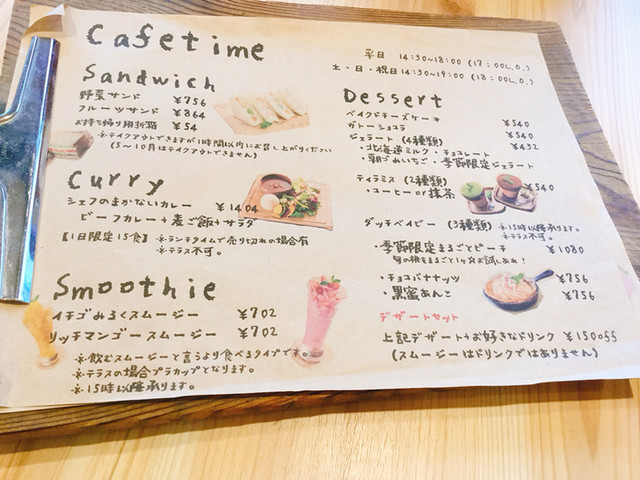 Cafetime
平日 14:30~18:00 (17:00L.O.)
土・日・祝日 14:30~19:00 (18:00L.O.)
Sandwich
野菜サンド ¥756
フルーツサンド ¥864
お持ち帰り用折箱 ¥54
※テイクアウトできますが1時間以内にお召し上がりください
(5~10月はテイクアウトできません)
Curry
シェフのまかないカレー ¥1404
ビーフカレー+麦ご飯+サラダ
【1日限定15食】※ランチタイムで売り切れの場合有
※テラス不可。
Smoothie
イチゴみるくスムージー ¥702
リッチマンゴースムージー ¥702
※飲むスムージーと言うより食べるタイプです。
※テラスの場合プラカップとなります。
※15時以降承ります。
Dessert
ベイクドチーズケーキ ¥540
ガトーショコラ ¥540
ジェラート (4種類) ¥432
・北海道ミルク・チョコレート
・朝づみいちご・季節限定ジェラート
ティラミス (2種類) ¥540
・コーヒー or 抹茶
ダッチベイビー (3種類) ※15時以降承ります。
※テラス不可。
・季節限定まるごとピーチ ¥1080
旬の桃をまるごと1ヶ分お試しあれ!
・チョコバナナッツ ¥756
・黒蜜あんこ ¥756
デザートセット
上記デザート+お好きなドリンク ¥150off
(スムージーはドリンクではありません)